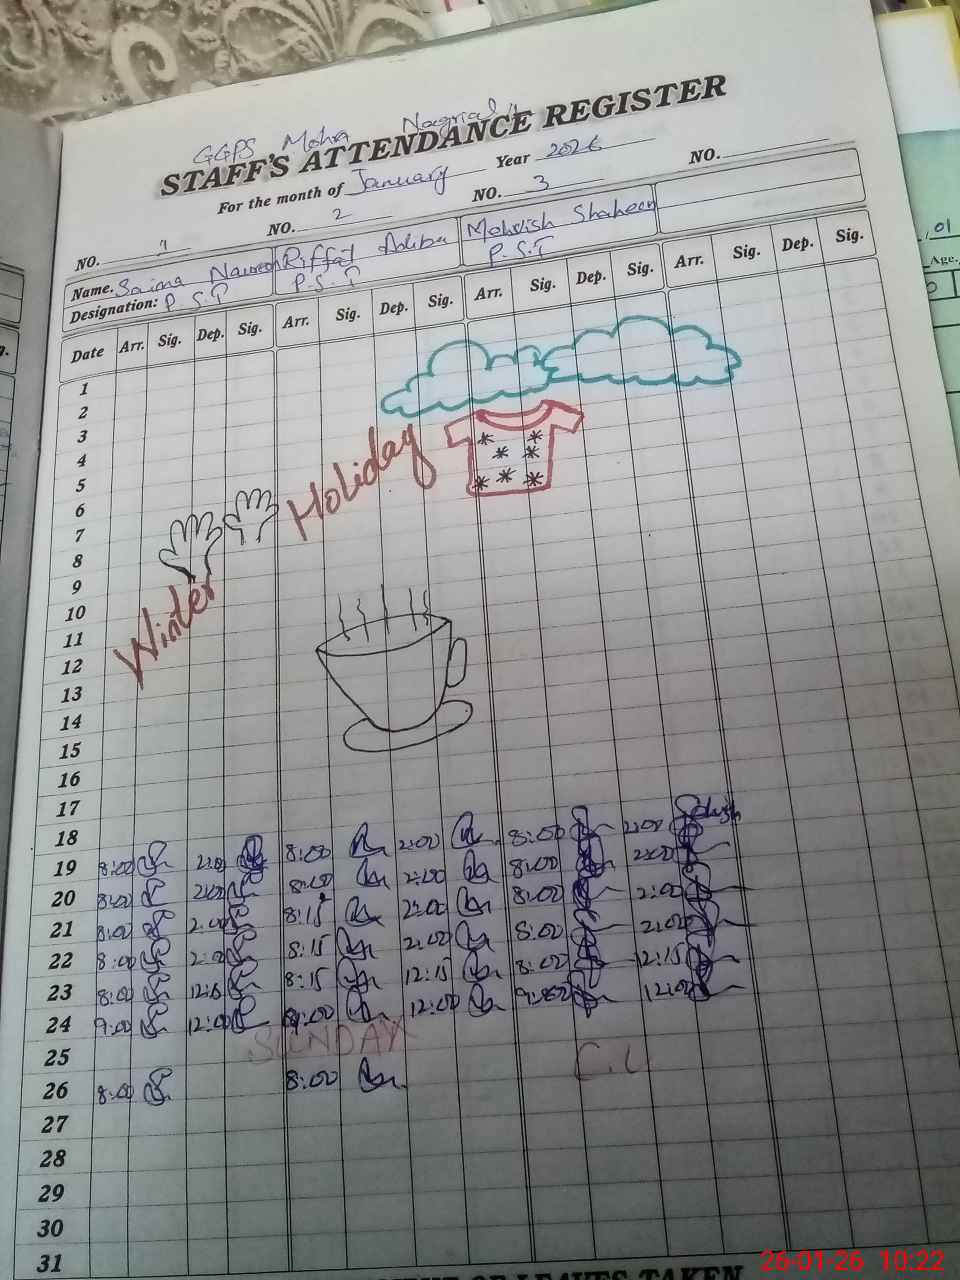 GGPS Mohra Nagrial
STAFF'S ATTENDANCE REGISTER
For the month of January Year 2026
NO. 1 NO. 2 NO. 3 NO.
Name. Saima Naureen Riffat Adiba Mehvish Shaheen
Designation: P.S.T P.S.T P.S.T
Date Arr. Sig. Dep. Sig. Arr. Sig. Dep. Sig. Arr. Sig. Dep. Sig. Arr. Sig. Dep. Sig.
1
2
3
4
5
6
7
8
9
10
11
12
13
14
15
16
17
Winter Holiday
18
19 8:00 2:00 8:00 2:00 8:00 2:00
20 8:00 2:00 8:00 2:00 8:00 2:00
21 8:00 2:00 8:15 2:00 8:00 2:00
22 8:00 2:00 8:15 2:00 8:00 2:00
23 8:00 12:15 8:15 12:15 8:00 12:15
24 9:00 12:00 9:00 12:00 9:00 12:00
25 SUNDAY
26 8:00 8:00 C.L
27
28
29
30
31
OF LEAVES TAKEN
, 01
Age.
26-01-26 10:22